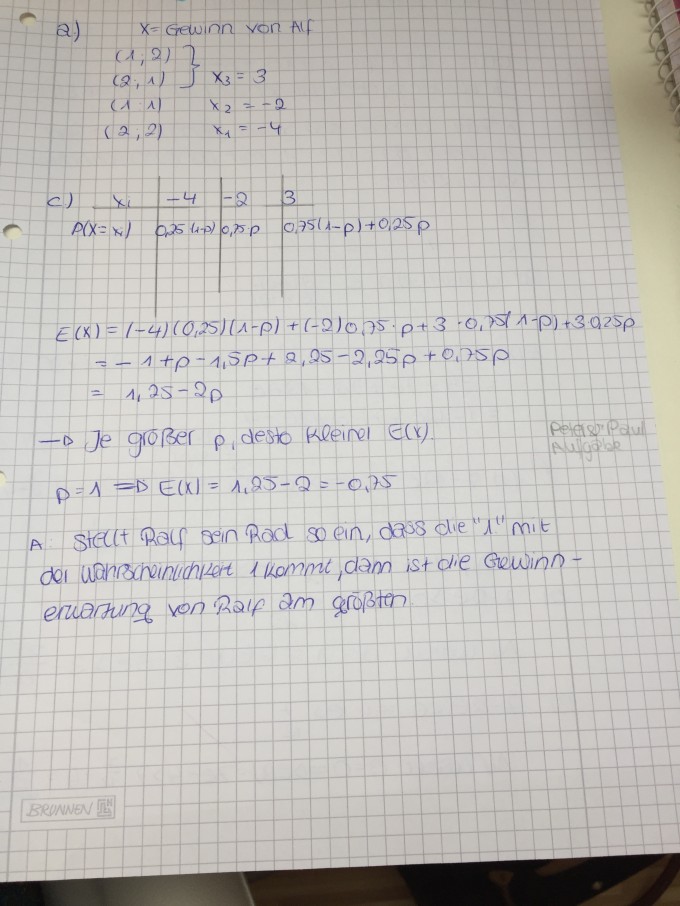 a) X = Gewinn von Alf
(1, 2) }
(2, 1) } x₃ = 3
(1 1) x₂ = -2
(2, 2) x₁ = -4
c) xᵢ | -4 | -2 | 3
P(X = xᵢ) | 0,25 (1-p) | 0,75p | 0,75(1-p)+0,25p
E(X) = (-4)(0,25)(1-p) + (-2)0,75·p + 3·0,75(1-p)+3 0,25p
= -1+p-1,5p+2,25-2,25p+0,75p
= 1,25-2p
→ Je größer p, desto kleiner E(X).
Peter & Paul
Aufgabe
p = 1 ⇒ E(X) = 1,25-2 = -0,75
A: Stellt Ralf sein Rad so ein, dass die "1" mit
der Wahrscheinlichkeit 1 kommt, dann ist die Gewinn-
erwartung von Ralf am größten
BRUNNEN